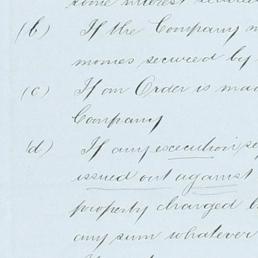 some interest
(b) If the Company
monies secured by
(c) If an Order is made
Company
(d) If any execution
issued out against
property charged
any sum whatever